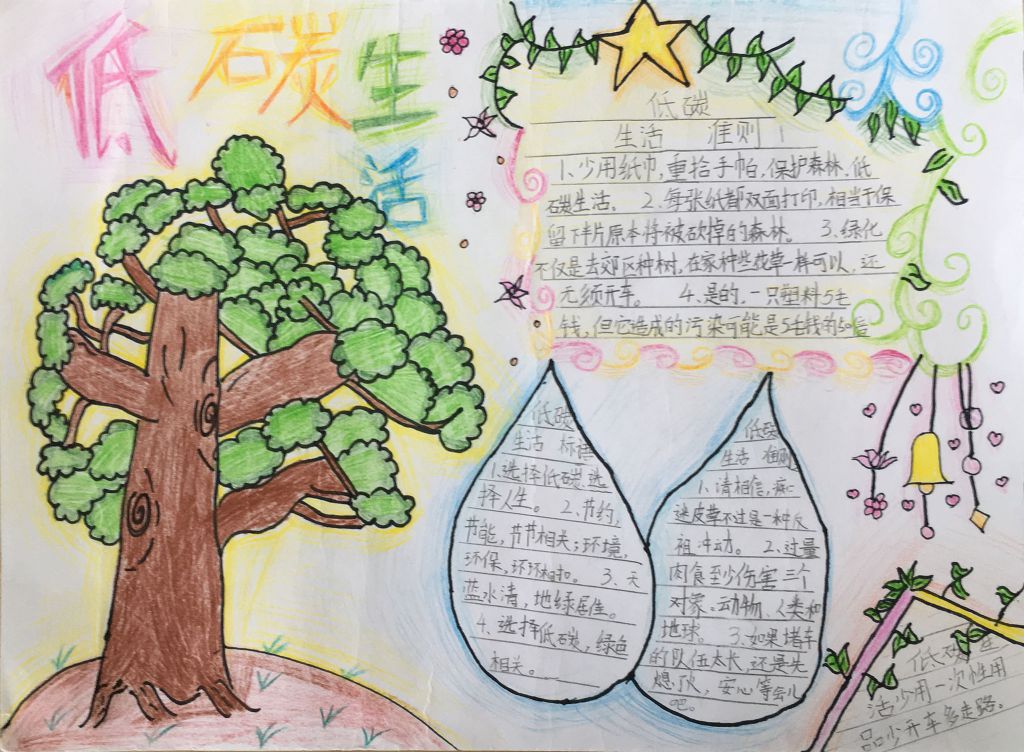 低碳生
活
低碳
生活 准则 1
1、少用纸巾,重拾手帕,保护森林、低
碳生活。 2、每张纸都双面打印,相当于保
留下半片原本将被砍掉的森林。 3、绿化
不仅是去郊区种树,在家种些花草一样可以,还
无须开车。 4、是的,一只塑料5毛
钱,但它造成的污染可能是5毛钱的50倍
低碳
生活 标语
1、选择低碳,选
择人生。 2、节约,
节能,节节相关;环境,
环保,环环相扣。 3、天
蓝水清,地绿居佳。
4、选择低碳,绿色
相关。
低碳
生活 准则
1、请相信,痴心
迷皮草不过是一种反
祖冲动。 2、过量
肉食至少伤害三个
对象。动物、人类和
地球。 3、如果堵车
的队伍太长,还是先
熄火,安心等会儿
吧。
低碳生
活少用一次性用
品少开车多走路。